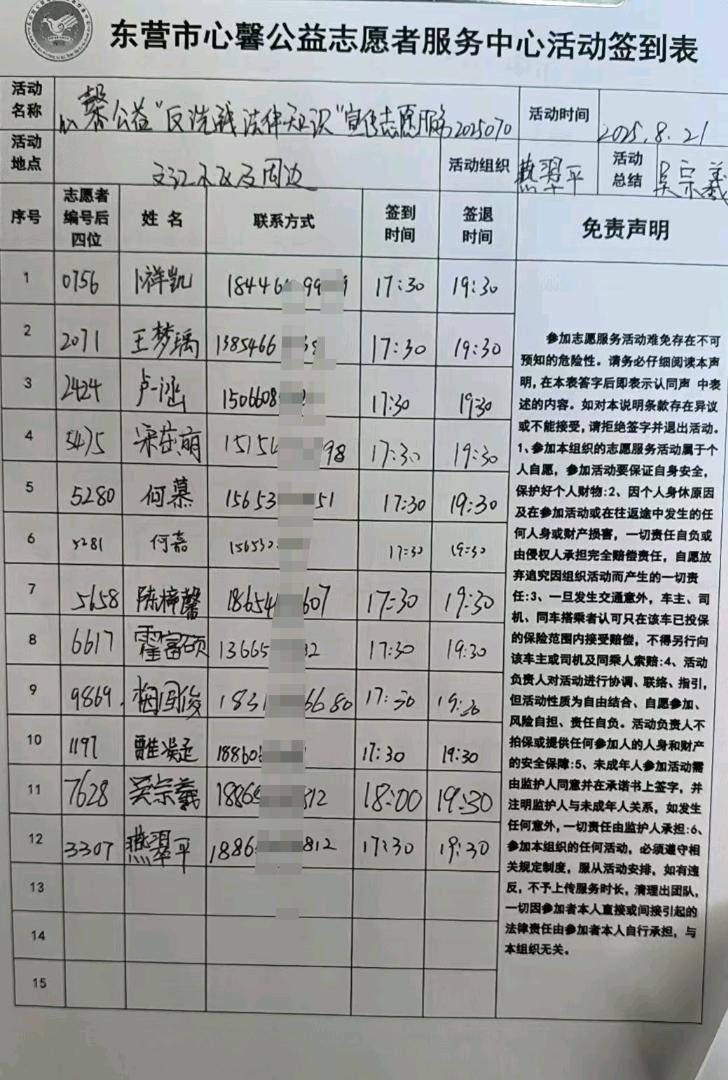 东营市心馨公益志愿者服务中心活动签到表
活动名称 心馨公益"反洗钱法律知识"宣传志愿服务2025070 活动时间 2025.8.21
活动地点 文汇小区及周边 活动组织 燕翠平 活动总结 吴宗羲
序号 志愿者编号后四位 姓 名 联系方式 签到时间 签退时间 免责声明
1 0756 卜祥凯 18446 99 9 17:30 19:30
2 2071 王梦瑀 1385466 38 17:30 19:30
3 2424 卢一涵 1506608 17:30 19:30
4 5475 宋茁萌 15154 98 17:30 19:30
5 5280 何慕 15653 51 17:30 19:30
6 5281 何嘉 156530 17:30 19:30
7 5658 陈梓馨 18654 607 17:30 19:30
8 6617 霍富硕 13665 32 17:30 19:30
9 9869 国俊 1831 6680 17:30 19:30
10 1197 18860 17:30 19:30
11 7628 吴宗羲 1886 812 18:00 19:30
12 3307 燕翠平 1886 812 17:30 19:30
13
14
15
参加志愿服务活动难免存在不可
预知的危险性。请务必仔细阅读本声
明,在本表签字后即表示认同声 中表
述的内容。如对本说明条款存在异议
或不能接受,请拒绝签字并退出活动。
1、参加本组织的志愿服务活动属于个
人自愿,参加活动要保证自身安全,
保护好个人财物:2、因个人身休原因
及在参加活动或在往返途中发生的任
何人身或财产损害,一切责任自负或
由侵权人承担完全赔偿责任,自愿放
弃追究因组织活动而产生的一切责
任:3、一旦发生交通意外,车主、司
机、同车搭乘者认可只在该车已投保
的保险范围内接受赔偿,不得另行向
该车主或司机及同乘人索赔:4、活动
负责人对活动进行协调、联络、指引,
但活动性质为自由结合、自愿参加、
风险自担、责任自负。活动负责人不
担保或提供任何参加人的人身和财产
的安全保障:5、未成年人参加活动需
由监护人同意并在承诺书上签字,并
注明监护人与未成年人关系,如发生
任何意外,一切责任由监护人承担:6、
参加本组织的任何活动,必须遵守相
关规定制度,服从活动安排,如有违
反,不予上传服务时长,清理出团队,
一切因参加者本人直接或间接引起的
法律责任由参加者本人自行承担,与
本组织无关。